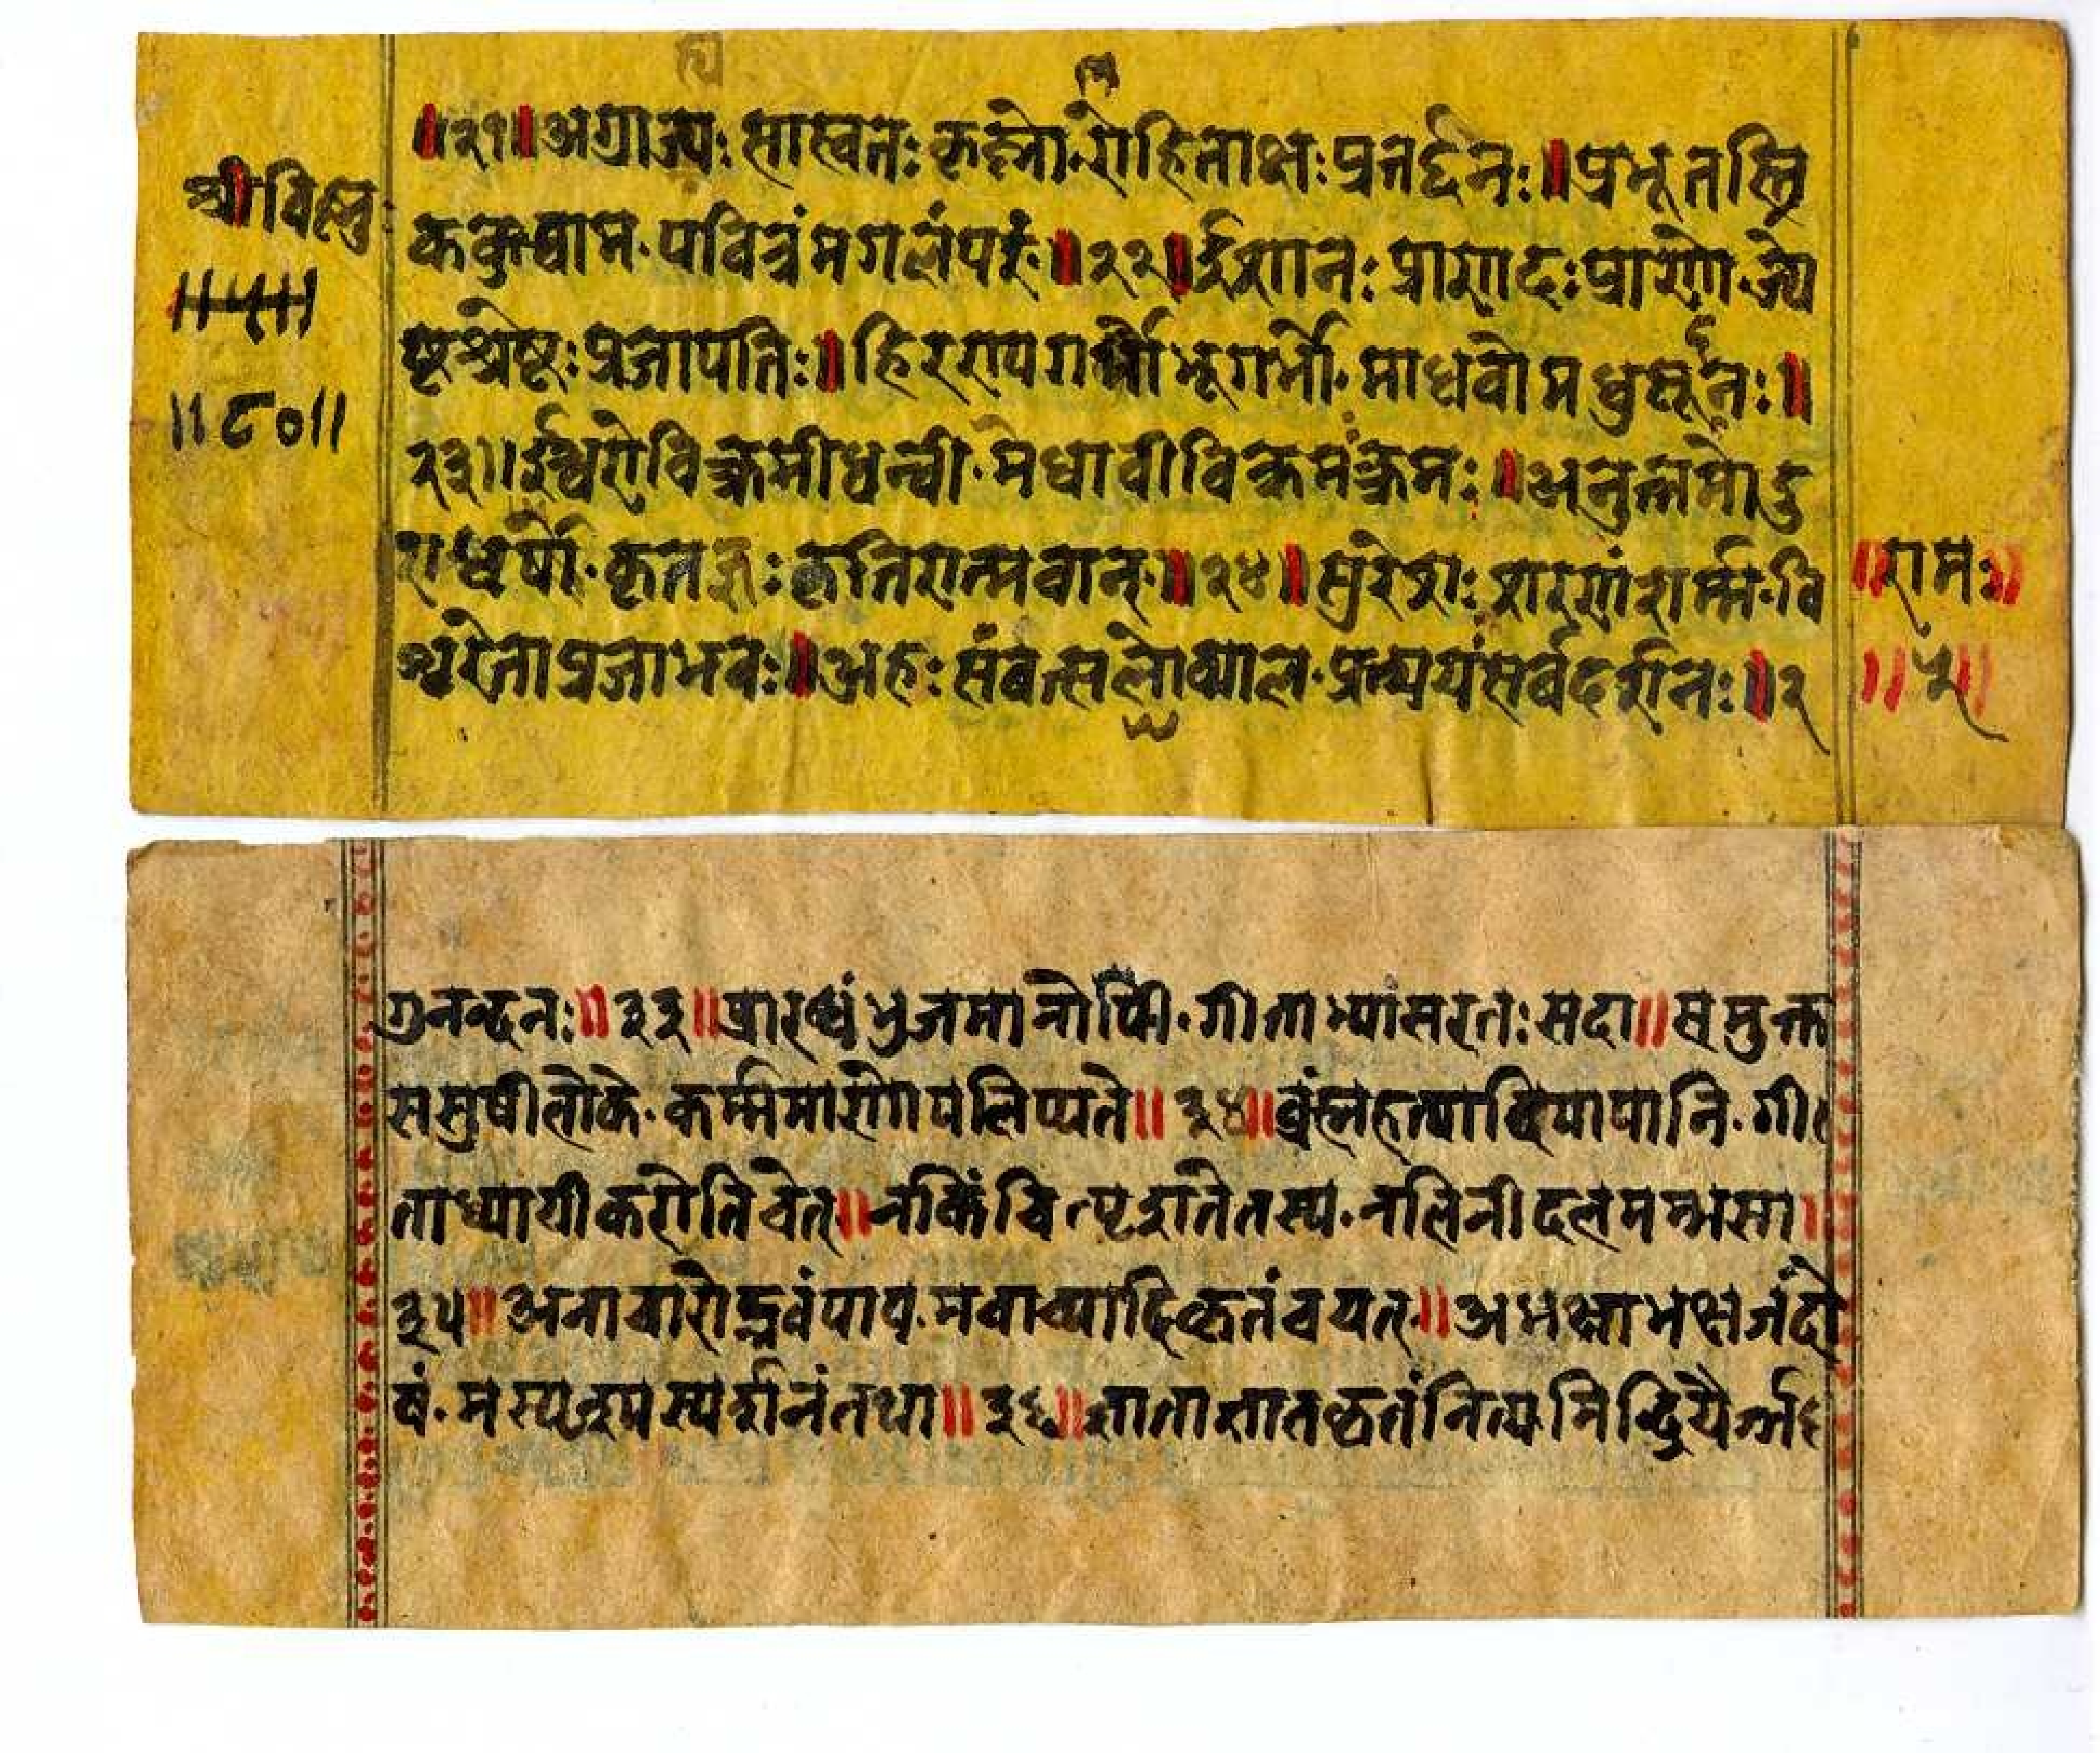 ॥२१॥अग्राज्यः सास्वतः कृह्नो.रोहिताक्षः प्रतर्द्दनः॥प्रभूतस्त्रि
श्रीविह्नुः
ककुब्धाम.पवित्रंमगलंपरं॥२२॥ईशानः प्राणदः प्राणो.ज्ये
॥५॥
ष्टश्रेष्टः प्रजापतिः॥हिरण्यगर्भोभूगर्भो.माधवोमधुसूदनः॥
॥८०॥
२३॥ईश्वरोविक्रमीधन्वी.मेधावीविक्रमंक्रमः॥अनुत्तमोदु
राधर्षो.कृतज्ञः कृतिरात्मवान्॥२४॥सुरेशः शरणंशर्म्म.वि
॥रामः॥
श्वरेताप्रजाभवः॥अहः संवत्सलोव्याल.प्रत्ययंसर्वदर्शनः॥२
॥५॥
गुनन्दनः॥३३॥प्रारब्धंभुजमानोपि.गीताभ्यांसरतः सदा॥समुक्त
ससुषीलोके.कर्म्ममाणेोपलिप्यते॥३४॥ब्रंह्महत्यादियापानि.गी
ताध्यायीकरोतिचेत्॥नकिंचित्पृशतेतस्य.नलिनीदलमम्भसा॥
३५॥अनाचारोद्भवंपाप.मवाच्यादिकृतंचयत्॥अभक्षाभक्षजंदो
षं.मस्पृश्पस्पर्शनंतथा॥३६॥ज्ञाताज्ञातकृतंनित्य.मिन्द्रियैर्ज